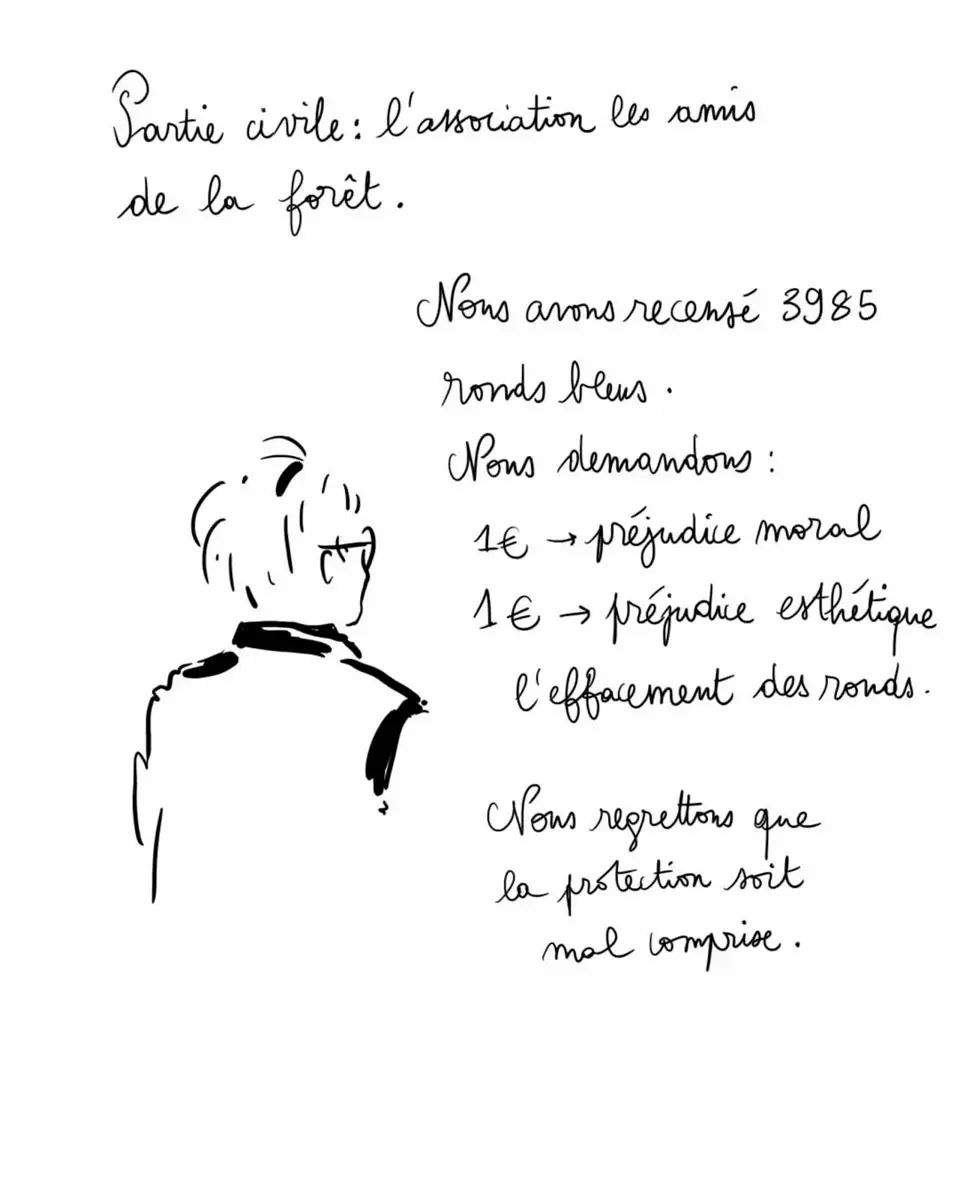 Partie civile : l'association les amis
de la forêt.
Nous avons recensé 3985
ronds bleus.
Nous demandons :
1€ → préjudice moral
1€ → préjudice esthétique
l'effacement des ronds.
Nous regrettons que
la protection soit
mal comprise.